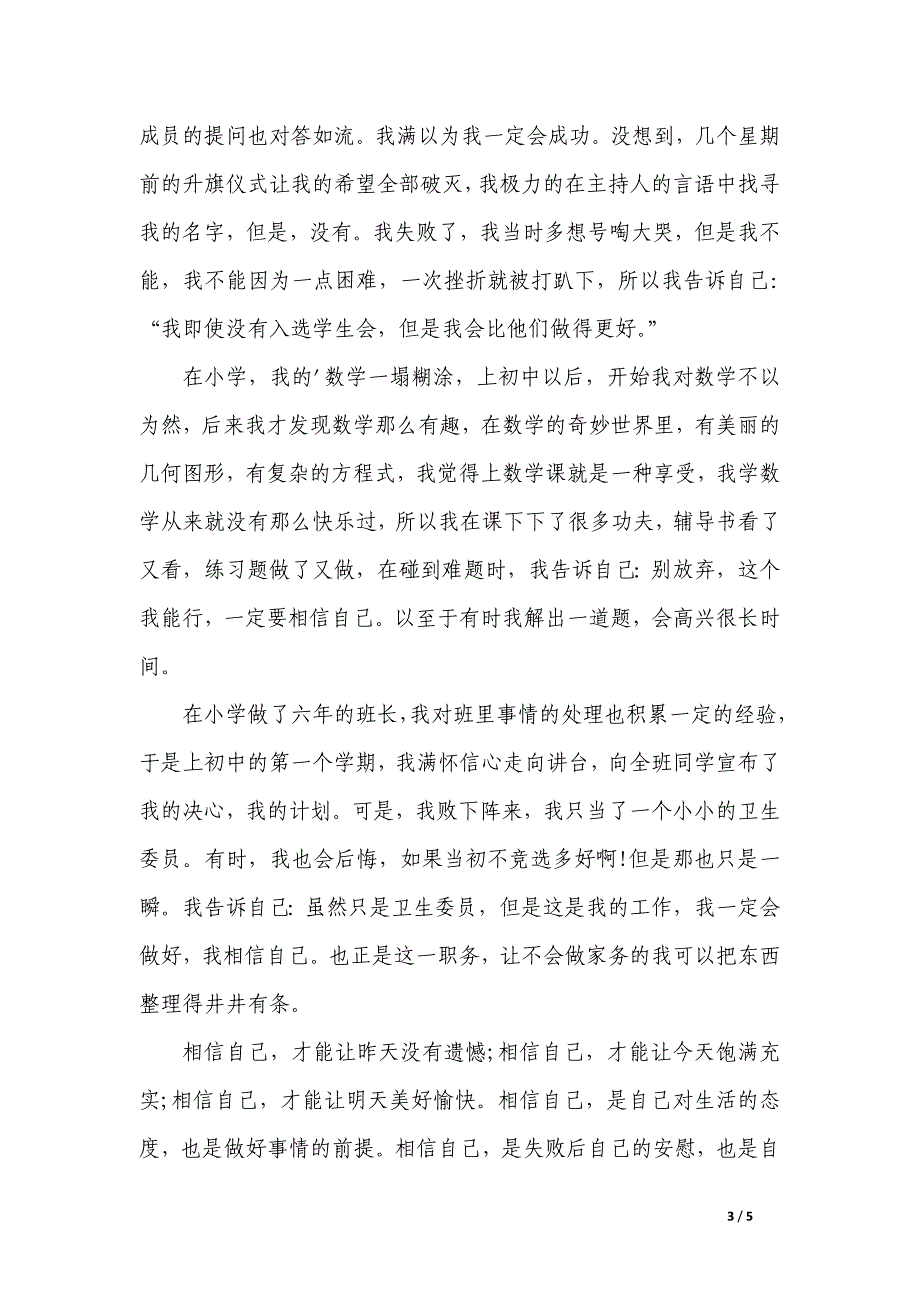 成员的提问也对答如流。我满以为我一定会成功。没想到，几个星期
前的升旗仪式让我的希望全部破灭，我极力的在主持人的言语中找寻
我的名字，但是，没有。我失败了，我当时多想号啕大哭，但是我不
能，我不能因为一点困难，一次挫折就被打趴下，所以我告诉自己：
“我即使没有入选学生会，但是我会比他们做得更好。”
在小学，我的′数学一塌糊涂，上初中以后，开始我对数学不以
为然，后来我才发现数学那么有趣，在数学的奇妙世界里，有美丽的
几何图形，有复杂的方程式，我觉得上数学课就是一种享受，我学数
学从来就没有那么快乐过，所以我在课下下了很多功夫，辅导书看了
又看，练习题做了又做，在碰到难题时，我告诉自己：别放弃，这个
我能行，一定要相信自己。以至于有时我解出一道题，会高兴很长时
间。
在小学做了六年的班长，我对班里事情的处理也积累一定的经验，
于是上初中的第一个学期，我满怀信心走向讲台，向全班同学宣布了
我的决心，我的计划。可是，我败下阵来，我只当了一个小小的卫生
委员。有时，我也会后悔，如果当初不竞选多好啊！但是那也只是一
瞬。我告诉自己：虽然只是卫生委员，但是这是我的工作，我一定会
做好，我相信自己。也正是这一职务，让不会做家务的我可以把东西
整理得井井有条。
相信自己，才能让昨天没有遗憾；相信自己，才能让今天饱满充
实；相信自己，才能让明天美好愉快。相信自己，是自己对生活的态
度，也是做好事情的前提。相信自己，是失败后自己的安慰，也是自
3 / 5